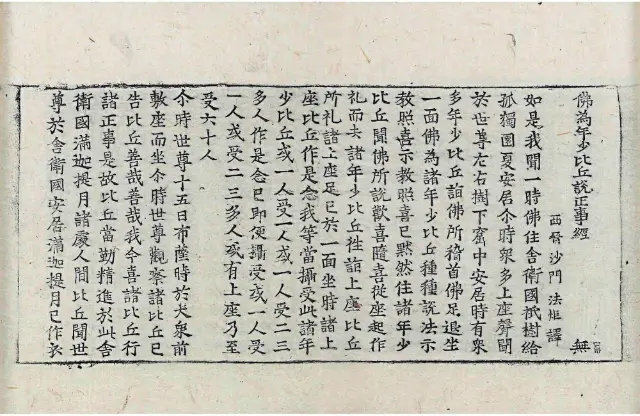 佛為年少比丘說正事經
無
西晉沙門法炬譯
如是我聞一時佛住舍衛國祇樹給
孤獨園夏安居尒時衆多上座聲聞
於世尊左右樹下窟中安居時有衆
多年少比丘詣佛所稽首佛足退坐
一面佛為諸年少比丘種種說法示
教照喜示教照喜已黙然住諸年少
比丘聞佛所說歡喜隨喜從座起作
礼而去諸年少比丘往詣上座比丘
所礼諸上座足已於一面坐時諸上
座比丘作是念我等當攝受此諸年
少比丘或一人受一人或一人受二三
多人作是念已即便攝受或一人受
一人或受二三多人或有上座乃至
受六十人
尒時世尊十五日布薩時於大衆前
敷座而坐尒時世尊觀察諸比丘已
告比丘善哉善哉我今喜諸比丘行
諸正事是故比丘當勤精進於此舍
衛國滿迦提月諸處人間比丘聞世
尊於舍衛國安居滿迦提月已作衣